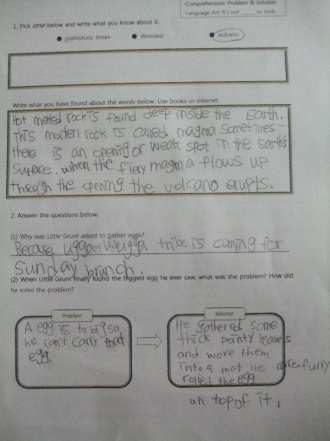 Comprehension: Problem & Solution
Language Art It's our ____ to
1. Pick one below and write what you know about it.
prehistoric times dinosaur volcano
Write what you have found about the words below. Use books or internet.
Hot melted rock is found deep inside the Earth.
this molten rock is called magma sometimes
there is an opening or weak spot in the Earth's
surface. when the fiery magma flows up
through the opening the volcano erupts.
2. Answer the questions below.
(1) Why was Little Grunt asked to gather eggs?
Because ugga-wugga tribe is coming for
Sunday brunch.
(2) When Little Grunt finally found the biggest egg he ever saw, what was the problem? How did
he solve the problem?
Problem
A egg is to big so
he can't carry that
egg.
Solution
He gathered some
thick pointy leaves
and wove them
into a mat. He carefully
rolled the egg
on top of it.